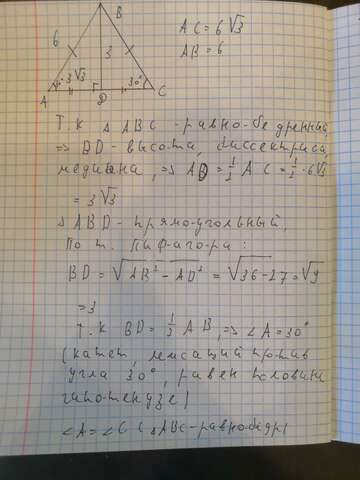 B
AC = 6√3
AB = 6
6
3
3√3
30°
A
D
C
Т.к △ ABC - равно-бедренный,
=> BD - высота, биссектриса,
медиана, => AD = 1/2 AC = 1/2 · 6√3
= 3√3
△ ABD - прямо-угольный,
По т. Пифагора:
BD = √AB² - AD² = √36-27 = √9
= 3
Т.к BD = 1/2 AB, => ∠A = 30°
(катет, лежащий против
угла 30°, равен половине
гипотенузе)
∠A = ∠C (△ABC - равнобедр)